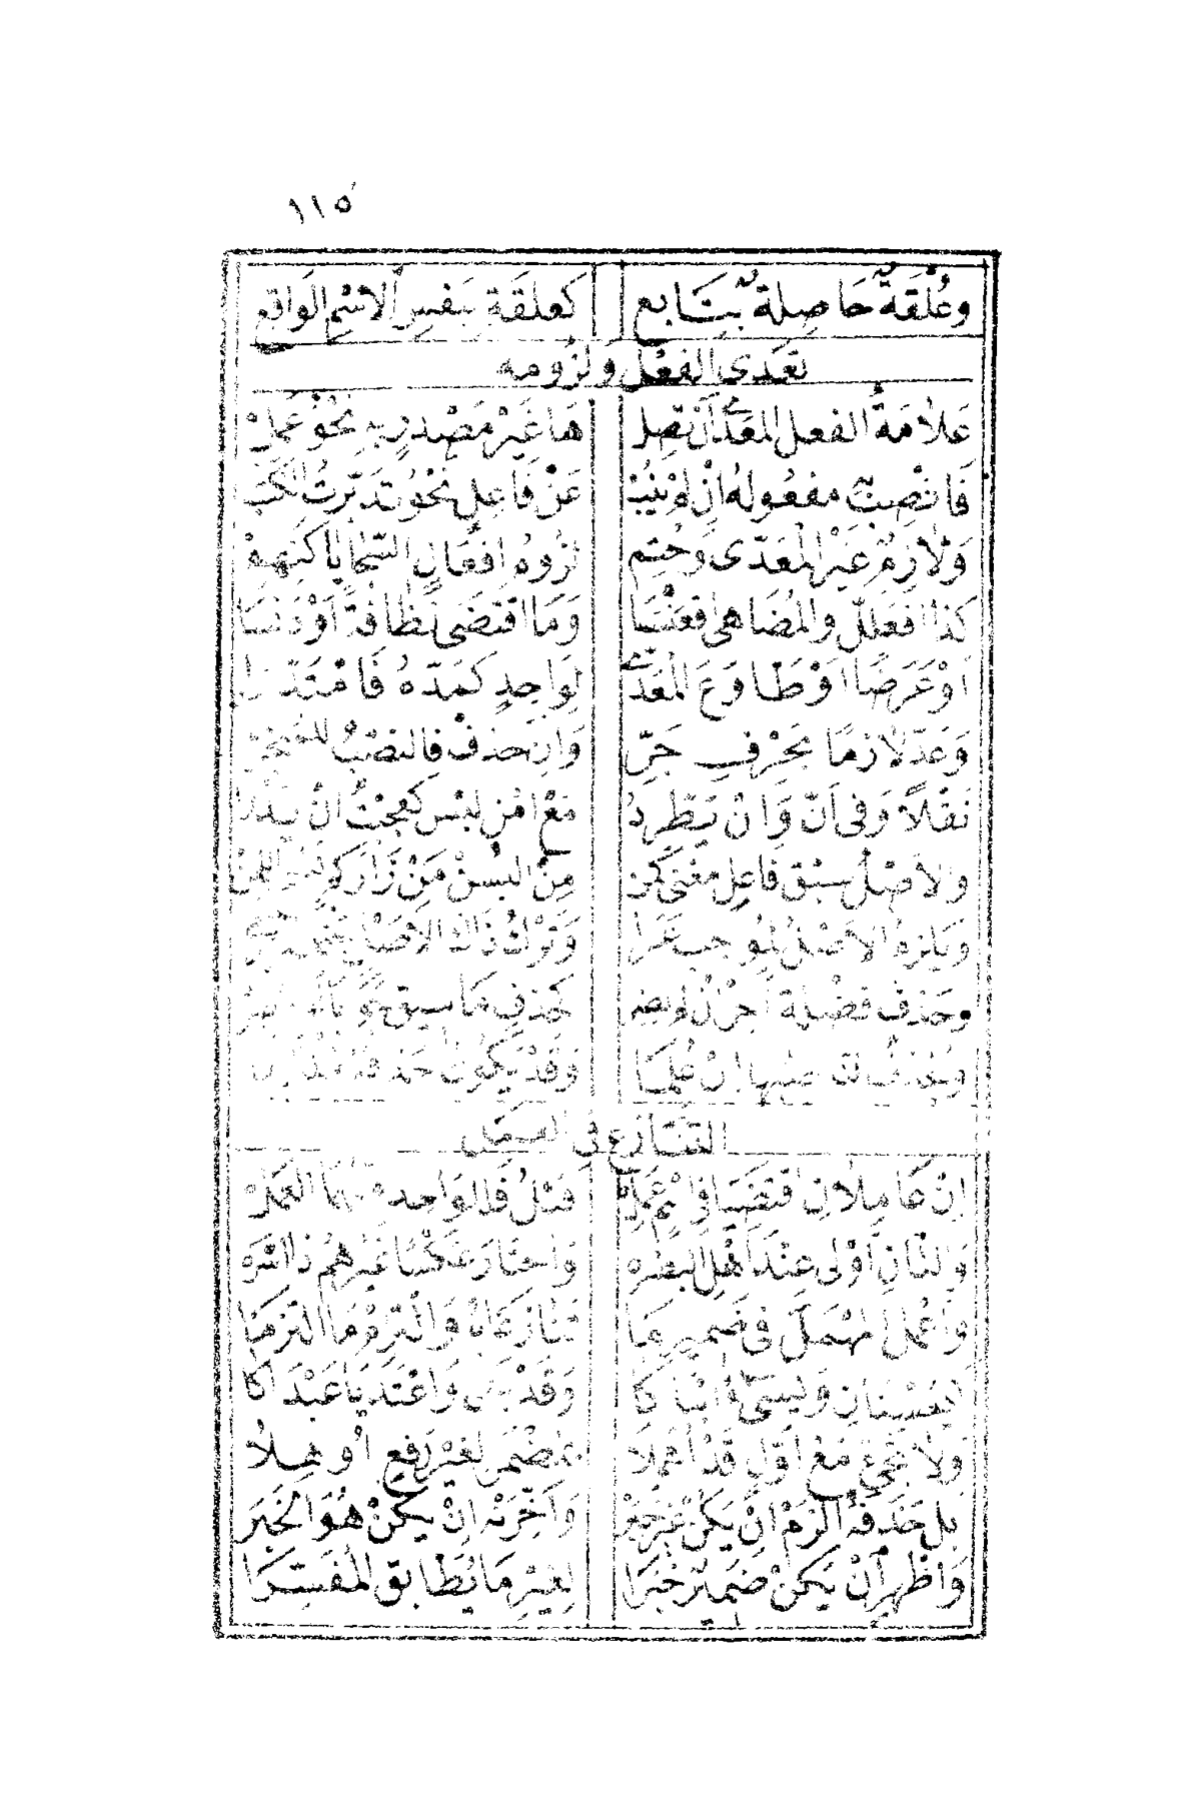 ١١٥
وَعُلْقَةٌ حَاصِلَةٌ بِتَابِعِ كَعُلْقَةٍ بِنَفْسِ الِاسْمِ الْوَاقِعِ
تعدى الفعل ولزومه
عَلَامَةُ الفعل المُعَدَّى أَنْ تَصِلْ هَا غَيْرِ مَصْدَرٍ بِهِ نَحْوُ عَمِلْ
فَانْصِبْ بِهِ مفعُولَهُ إِنْ لَمْ يَنُبْ عَنْ فَاعِلٍ نَحْوُ تَدَبَّرْتُ الْكُتُبْ
وَلَازِمٌ غَيْرُ الْمُعَدَّى وَحُتِمْ لُزُومُ أَفْعَالِ السَّجَايَا كَنَهِمْ
كَذَا افْعَلَلَّ وَالمُضَاهِى اقْعَنْسَسَا وَمَا اقْتَضَى نَظَافَةً أَوْ دَنَسَا
أَوْ عَرَضًا أَوْ طَاوَعَ الْمُعَدَّى لِوَاحِدٍ كَمَدَّهُ فَامْتَدَّا
وَعَدِّ لَازِمًا بِحَرْفِ جَرِّ وَإِنْ حُذِفْ فَالنَّصْبُ لِلْمُنْجَرِّ
نَقْلًا وَفِى أَنَّ وَأَنْ يَطَّرِدُ مَعْ أَمْنِ لَبْسٍ كَعَجِبْتُ أَنْ يَدُوا
وَالأَصْلُ سَبْقُ فَاعِلٍ مَعْنًى كَمَنْ مِنْ أَلْبِسُنْ مَنْ زَارَكُمْ نَسْجَ الْيَمَنْ
وَيَلْزَمُ الأَصْلُ لِمُوجِبٍ عَرَا وَتَرْكُ ذَاكَ الأَصْلِ
وَحَذْفَ فَضْلَةٍ أَجِزْ إِنْ لَمْ يَضِرْ كَحَذْفِ مَا سِيقَ
وَيُحْذَفُ إِنْ عُلِمَا وَقَدْ يَكُونُ حَذْفُهُ
التنازع فى العمل
إِنْ عَامِلَانِ اقْتَضَيَا فِى اسْمٍ عَمَلْ قَبْلُ فَلِلْوَاحِدِ مِنْهُمَا الْعَمَلْ
وَالثَّانِ أَوْلَى عِنْدَ أَهْلِ الْبَصْرَهْ وَاخْتَارَ عَكْسًا غَيْرُهُمْ ذَا أَسْرَهْ
وَأَعْمِلِ الْمُهْمَلَ فِى ضَمِيرِ مَا تَنَازَعَاهُ وَالْتَزِمْ مَا الْتُزِمَا
كَيُحْسِنَانِ وَيُسِىءُ ابْنَاكَا وَقَدْ بَغَى وَاعْتَدَيَا عَبْدَاكَا
وَلَا تَجِئْ مَعْ أَوَّلٍ قَدْ أُهْمِلَا بِمُضْمَرٍ لِغَيْرِ رَفْعٍ أُوهِلَا
بَلْ حَذْفَهُ الْزَمْ إِنْ يَكُنْ غَيْرَ خَبَرْ وَأَخِّرَنْهُ إِنْ يَكُنْ هُوَ الْخَبَرْ
وَأَظْهِرْ إِنْ يَكُنْ ضَمِيرٌ خَبَرَا لِغَيْرِ مَا يُطَابِقُ الْمُفَسِّرَا